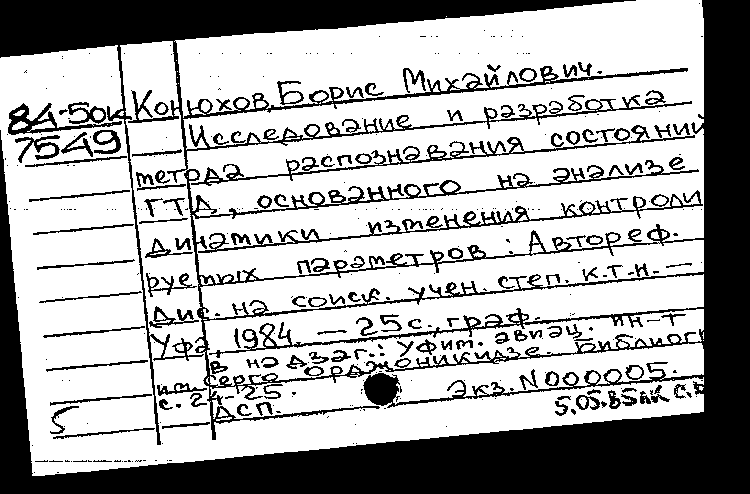 84-5ок Конюхов, Борис Михайлович.
7549 Исследование и разработка
метода распознавания состояний
ГТД, основанного на анализе
динамики изменения контроли
руемых параметров : Автореф.
дис. на соиск. учен. степ. к.т.н. —
Уфа, 1984. — 25 с., граф.
В надзаг.: Уфим. авиац. ин-т
им. Серго Орджоникидзе. Библиогр
с. 24-25.
ДСП. Экз. N000005.
5 5.05.85